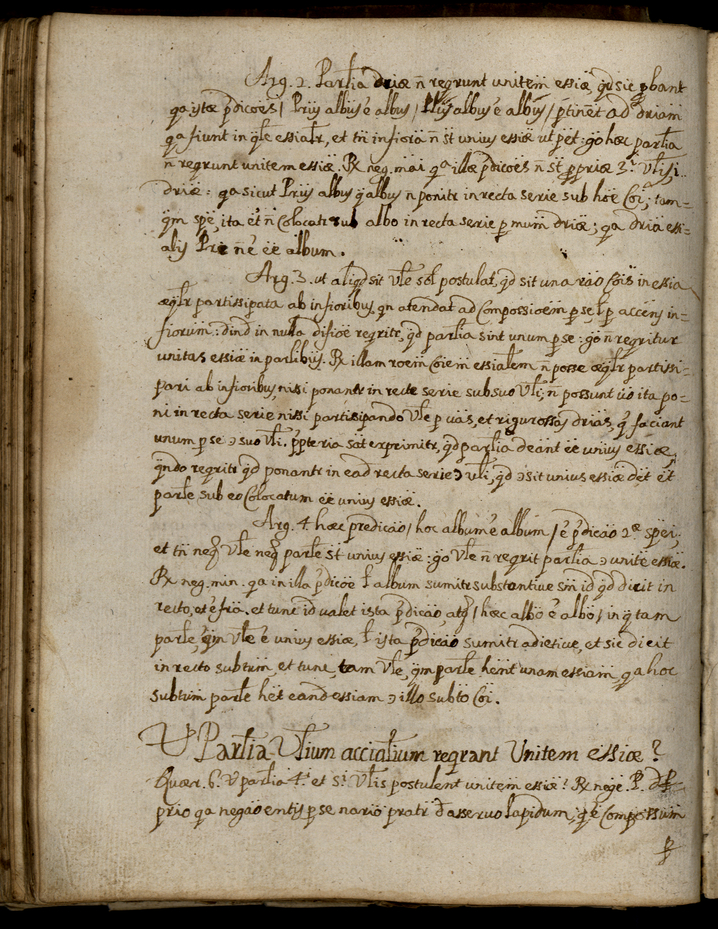 Arg. 2. Parlia driæ ñ reqrunt unitem̃ essiæ, qd sic pbant
qa istæ pdicoẽs / Prius albus ẽ albus / Prius albus ẽ albus / ptinẽt ad driam̃
qa fiunt in qle essialr, et tñ infiora ñ st unius essiæ ut pet: go hæc parlia
ñ reqrunt unitem essiæ. Rx neg. mai. qa illæ pdicoẽs ñ st ppriæ 3i Ulis i
driæ: qa sicut Prius albus q albus ñ ponitr in recta serie sub hoc Coi, tam-
qm spẽ, ita et ñ Colocatr sub albo in recta serie p mum driæ; qa dria essi=
alis Pri ñ ẽ ẽe album.
Arg. 3. ut aliqd sit Vle sol postulat, qd sit una rao Cois in essia
æqlr partissipata ab infioribus, qn atendat ad Compossioem p se, l p accens in=
fiorum: dind in nulla difioẽ reqritr, qd parlia sint unum p se: go ñ reqritur
unitas essiæ in parlibus. Rx illam roem Coiem essialem ñ posse æqlr partissi-
pari ab infioribus, nisi ponantr in recte serie sub suo Vli; ñ possunt uo ita po=
ni in recta serie nissi partisipando Vle p uas, et rigurossas drias, q faciant
unum p se ɔ suo Vli. ppteria sat exprimitr, qd parlia deant ẽe unius essiæ,
qndo reqritr qd ponantr in ead recta serie ɔ uli, qd ɔsit unius essiæ det et
parle sub eo Colocatum ẽe unius essiæ.
Arg. 4. hæc predicao / hoc album ẽ album / ẽ pdicao 2æ spei,
et tñ neq Vle neq parle st unius essiæ: go Vle ñ reqrit parlia ɔ unite essiæ.
Rx neg. min. qa in illa pdicoẽ l album sumitr substantiue sm id qd dicit in
recto, et ẽ fria. et tunc id valet ista pdicao, atq / hæc albo ẽ albo / in q tam
parle, qm Vle ẽ unius essiæ, l ista pdicao sumitr adietiue, et sic dicit
in recto subtum, et tunc, tam Vle, qm parle hent unam essiam, qa hoc
subtum parle het eand essiam ɔ illo subto Coi.
V Parlia Vlium accialium reqrant Unitem essiæ?
Quær. 6. V parlia 4i et 5i Vlis postulent unitem essiæ? Rx nege. P.
prio qa negao entis p se nario pratr d asseruo lapidum, q ẽ Compossum
p